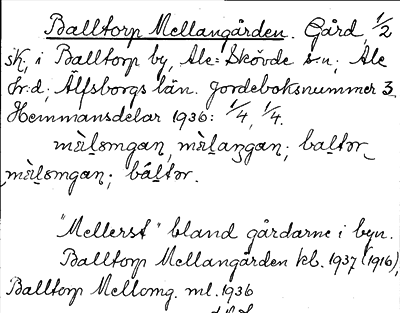 Balltorp Mellangården. Gård, 1/2
sk; i Balltorp by, Ale-Skövde s:n; Ale
hr:d; Älfsborgs län. Jordeboksnummer 3
Hemmansdelar 1936: 1/4, 1/4.
baltor
"Mellerst" bland gårdarne i byn.
Balltorp Mellangården kb. 1937 (1916),
Balltorp Mellomg. ml. 1936